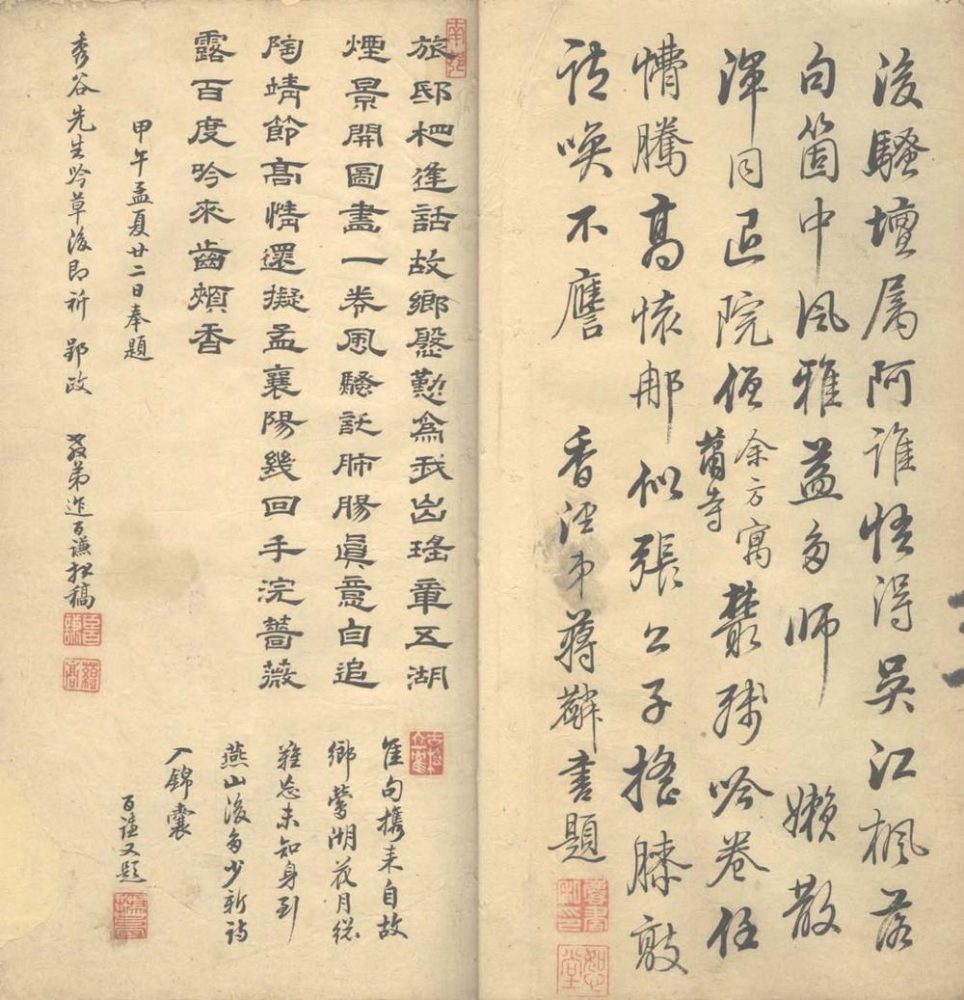 後騷壇属阿誰悟得吳江楓落
句箇中風雅益多師 嬾散
渾同退院僧
余方寓
蕭寺
叢殘吟卷任
懵騰高懷那似張公子搖膝敲
詩喚不譍 香涇弟蔣麟書題
旅邸相逢話故鄉慇懃為我出瑤章五湖
煙景開圖畫一卷風騷託肺腸眞意自追
陶靖節高情還擬孟襄陽幾回手浣薔薇
露百度吟來齒頰香
甲午孟夏廿二日奉題
秀谷先生吟草後即祈 郢政 教弟 百謙拜稿
佳句攜来自故
鄉鶯湖花月總
難忘未知身到
燕山後多少新詩
入錦囊
百謙又題